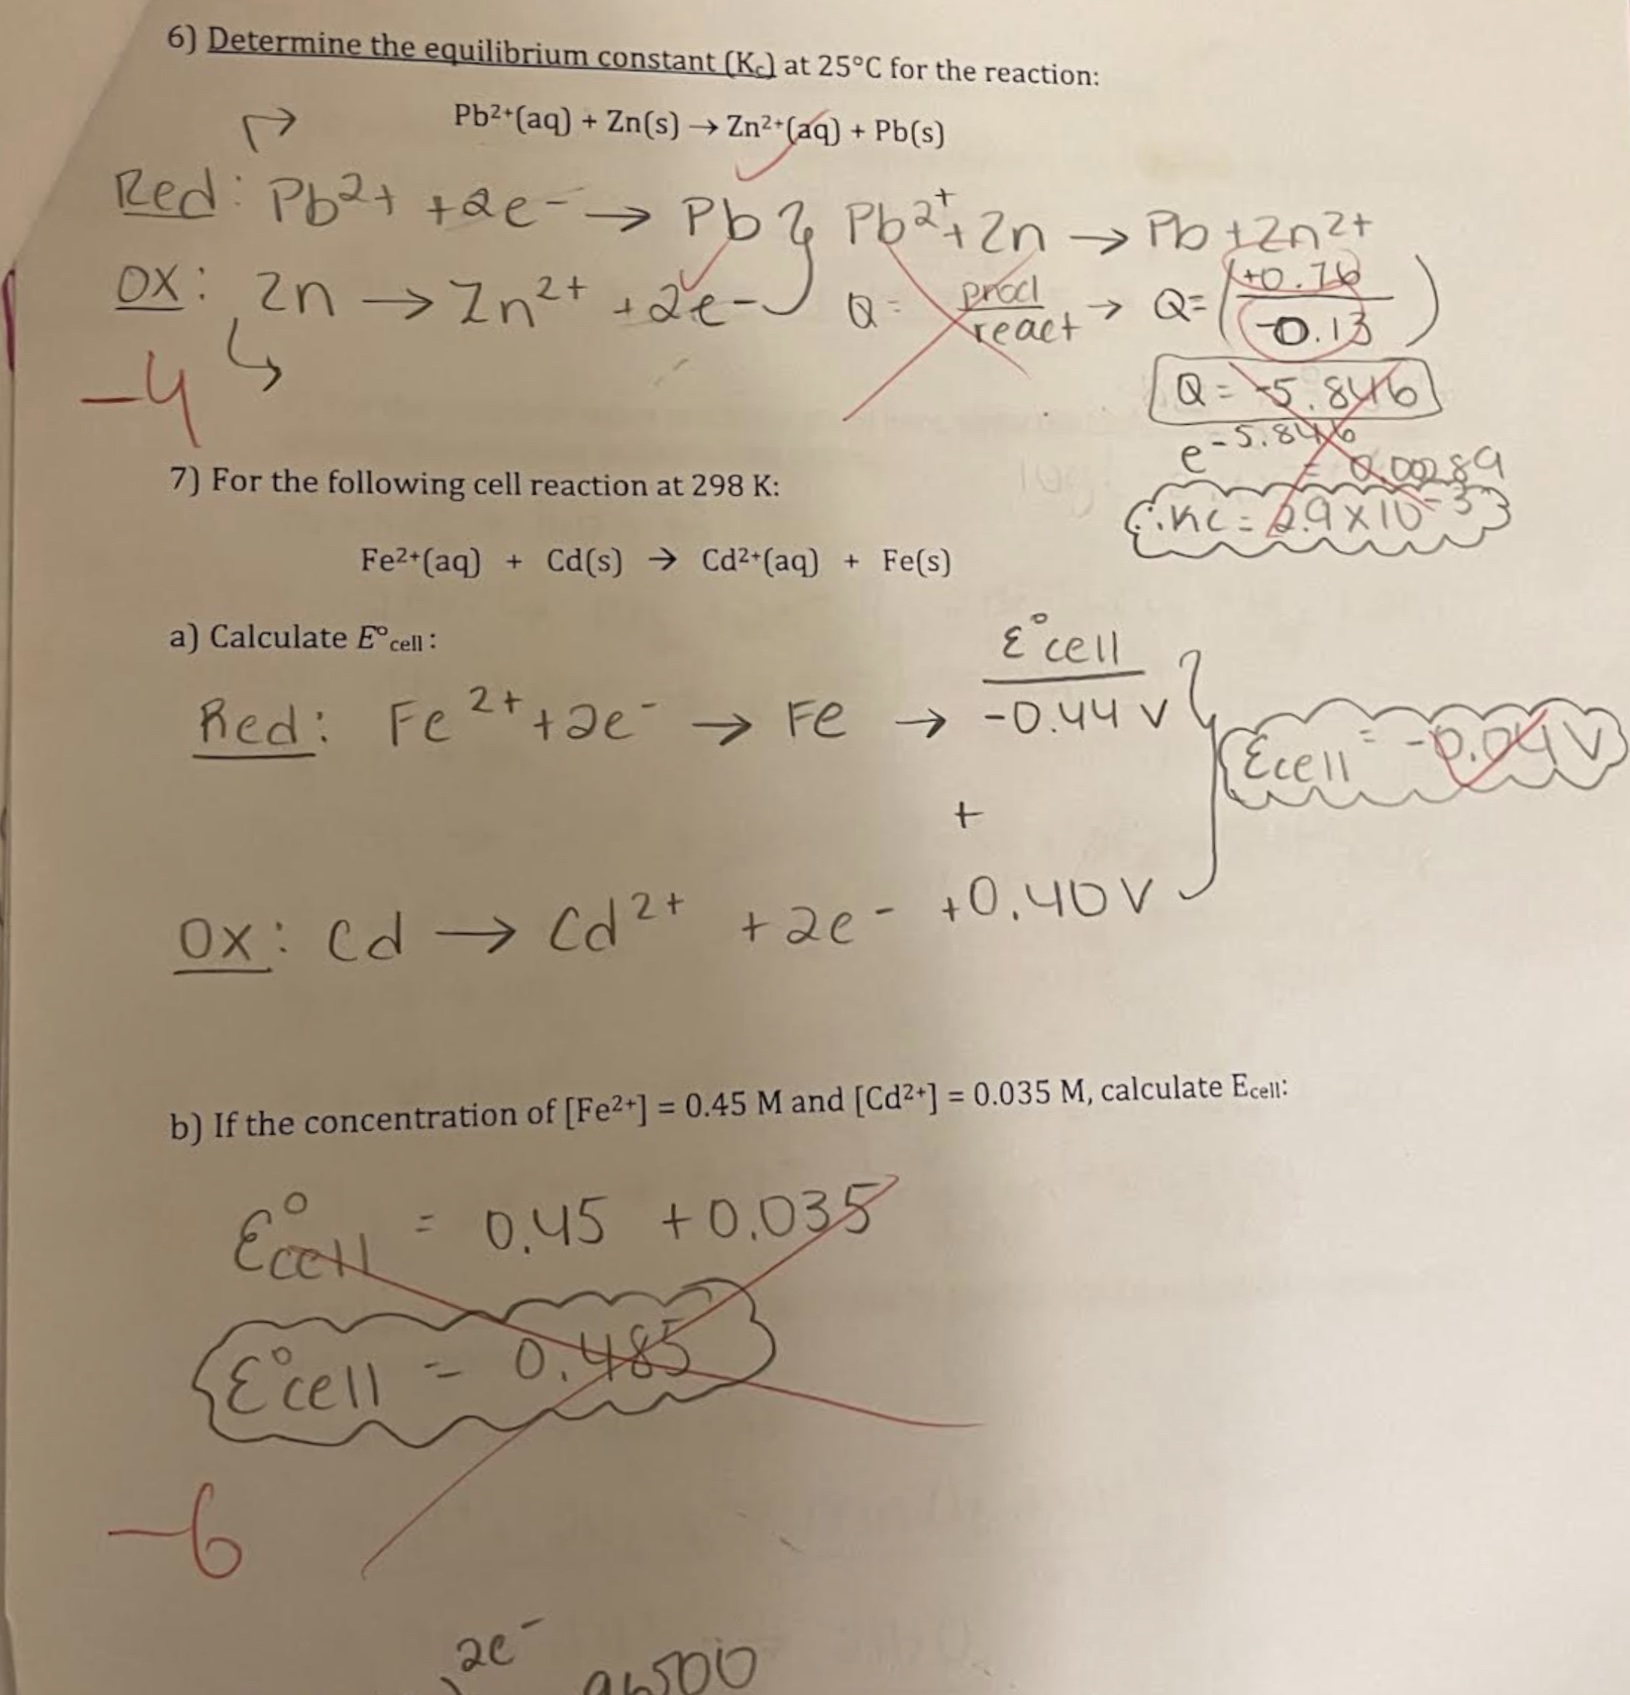 6) Determine the equilibrium constant (Kc) at 25°C for the reaction:
Pb²⁺(aq) + Zn(s) → Zn²⁺(aq) + Pb(s)
Red: Pb²⁺ + 2e⁻ → Pb } Pb²⁺ + Zn → Pb + Zn²⁺
OX: Zn → Zn²⁺ + 2e⁻ Q = prod/react → Q = (+0.76/-0.13)
-4
Q = -5.846
e^-5.846 = 0.00289
∴ Kc = 2.9 x 10⁻³
7) For the following cell reaction at 298 K:
Fe²⁺(aq) + Cd(s) → Cd²⁺(aq) + Fe(s)
a) Calculate E°cell:
ε°cell
Red: Fe²⁺ + 2e⁻ → Fe → -0.44 V
εcell = -0.04 V
+
OX: Cd → Cd²⁺ + 2e⁻ +0.40 V
b) If the concentration of [Fe²⁺] = 0.45 M and [Cd²⁺] = 0.035 M, calculate Ecell:
ε°cell = 0.45 + 0.035
ε°cell = 0.485
-6
2e⁻
96500